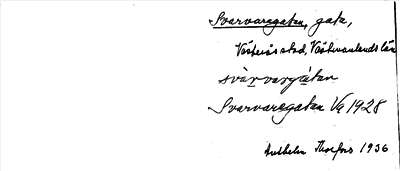 Svarvaregatan, gata,
Västerås stad, Västmanlands län
svàrvargàtan
Svarvaregatan Vg 1928
Anthelm Thorfors 1936